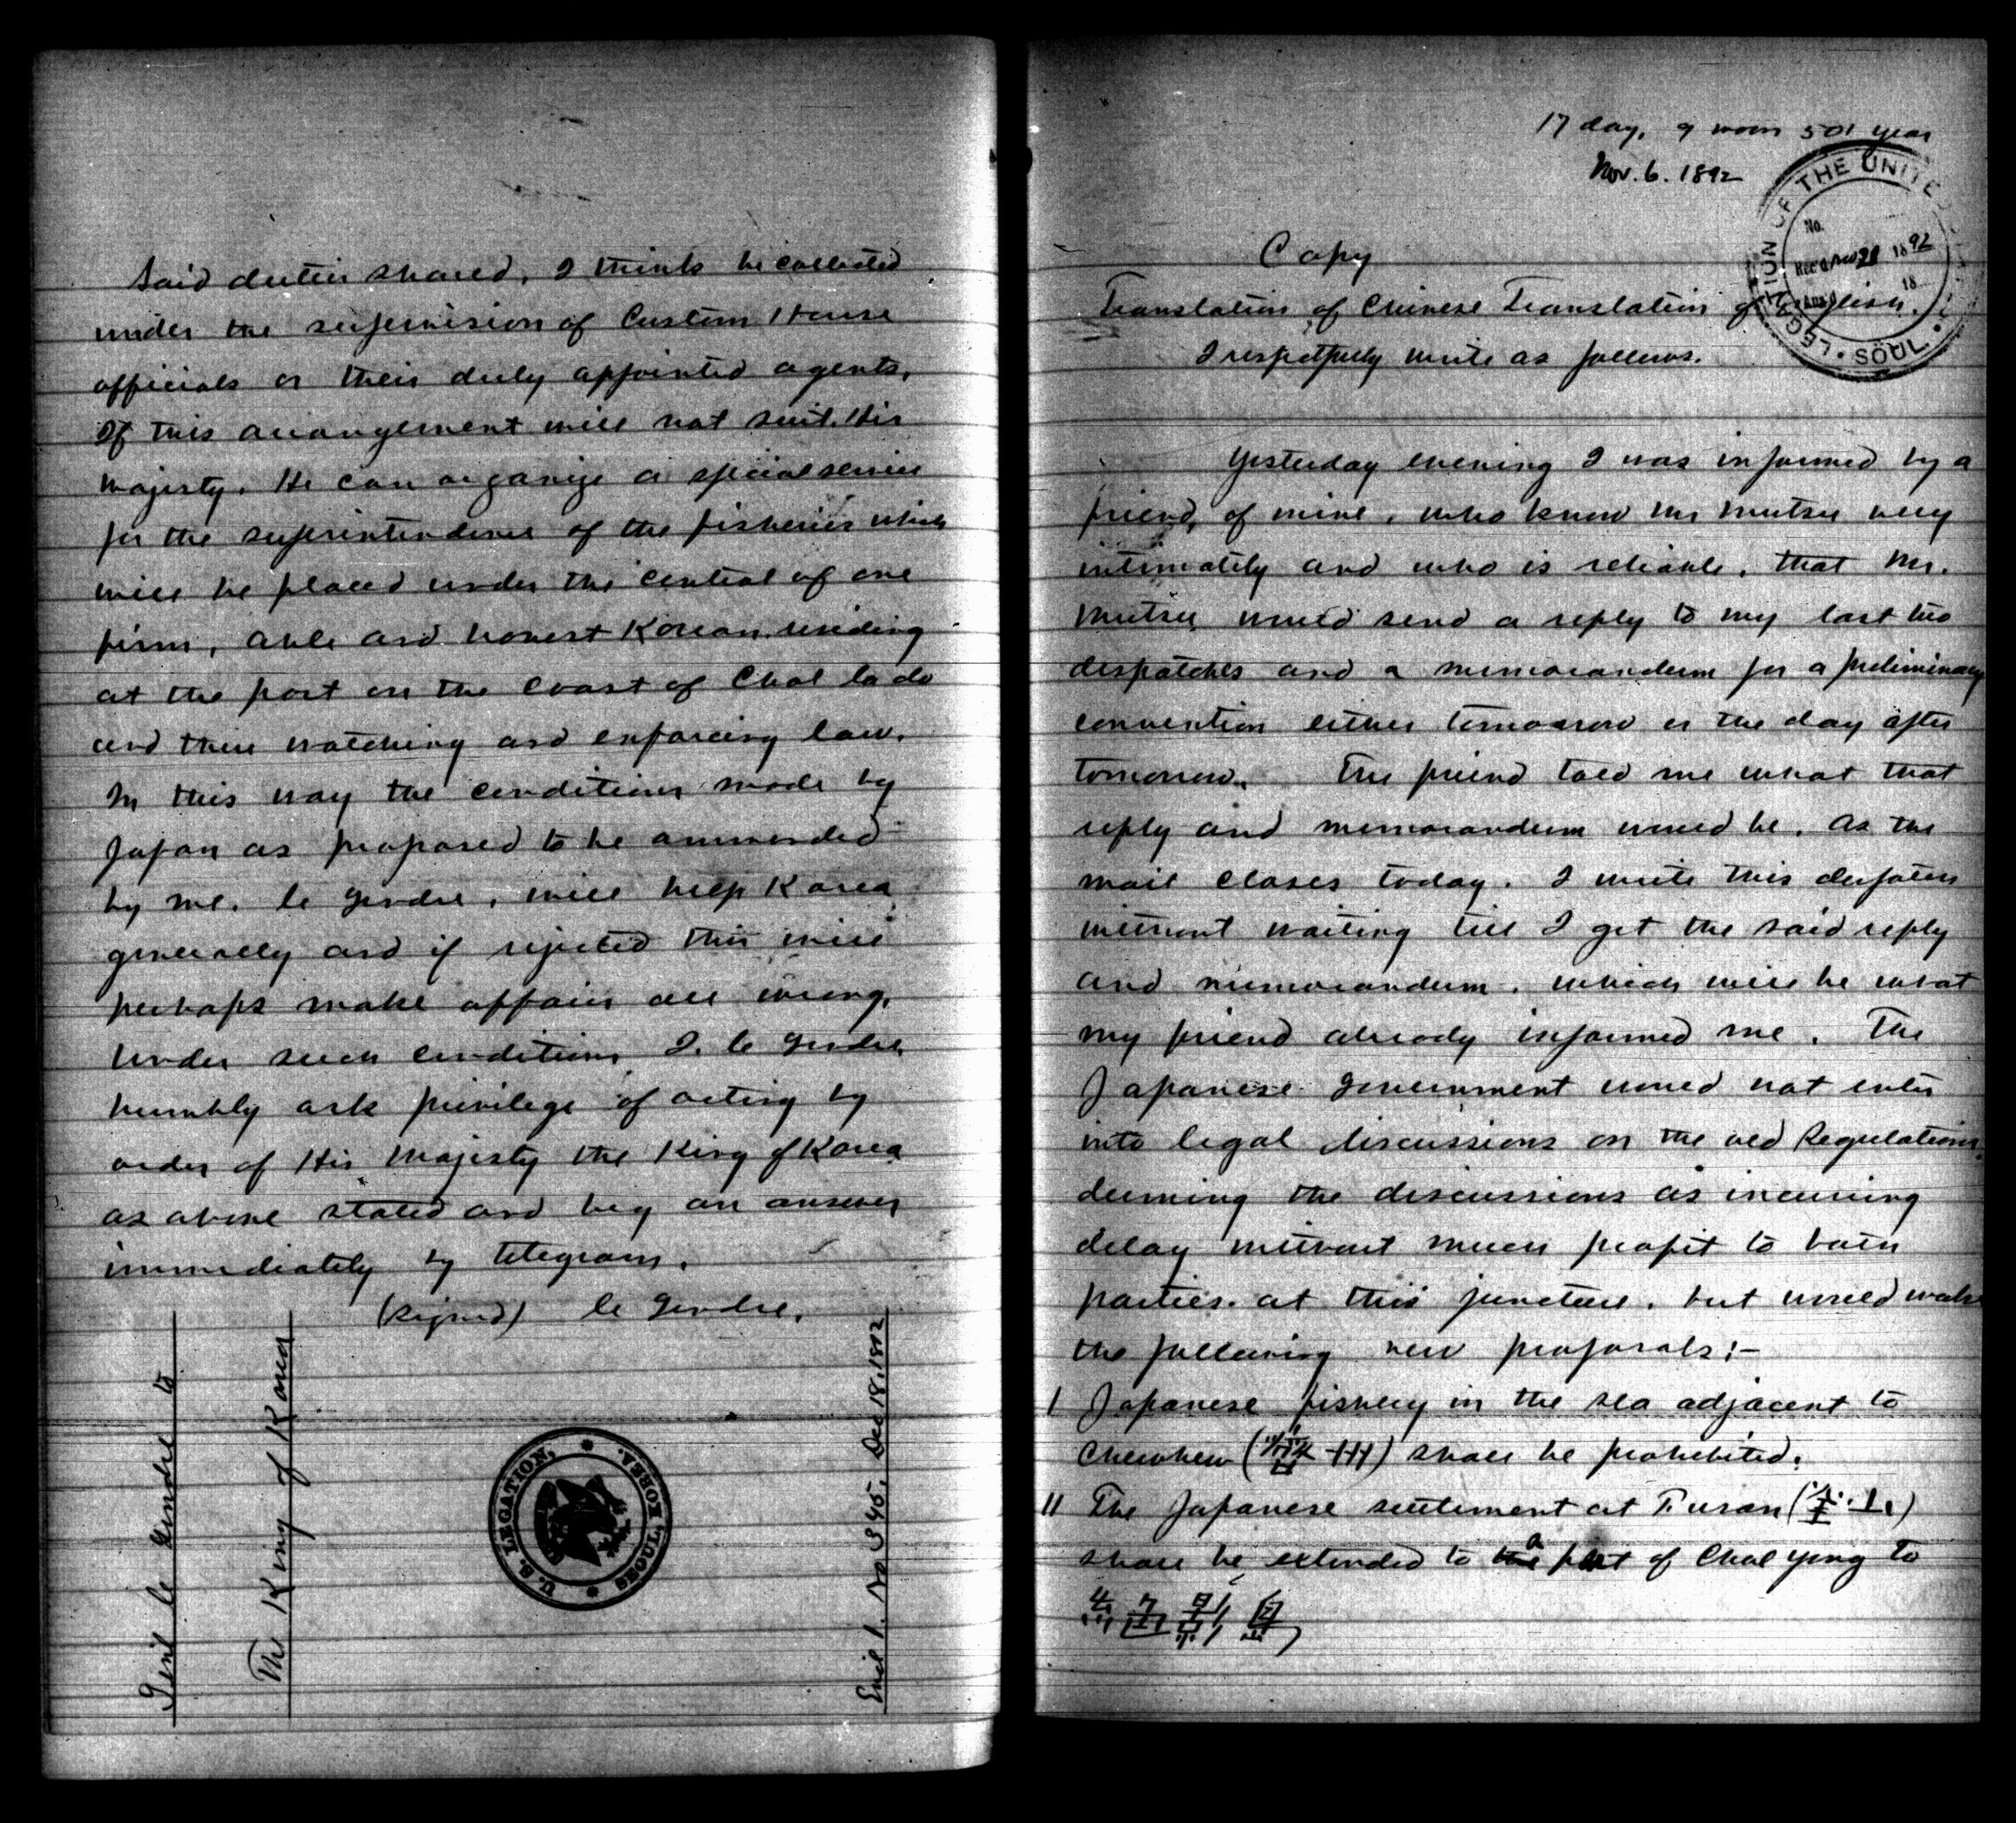 Said duties shared, I think be collected
under the supervision of Custom House
officials or their duly appointed agents.
If this arrangement will not suit His
Majesty, He can organize a special service
for the superintendence of the fisheries which
will be placed under the control of one
firm, able and honest Korean residing
at the port on the coast of Chal la do
and there watching and enforcing law.
In this way the conditions made by
Japan as proposed to be ammended
by me, le Gendre, will help Korea
generally and if rejected this will
perhaps make affairs all wrong.
Under such conditions I, le Gendre,
humbly ask privilege of acting by
order of His Majesty the King of Korea
as above stated and beg an answer
immediately by telegram.
(Signed) le Gendre.
Genl le Gendre to
The King of Korea
U. S. LEGATION, SEOUL KOREA.
Encl 1. No 345. Dec 18. 1892
17 day, 9 moon 501 year
Nov. 6. 1892
LEGATION OF THE UNITED SÖUL
No.
Rec'd Nov 1892
18
Copy
Translation of Chinese Translation of English.
I respetfully write as follows.
Yesterday evening I was informed by a
friend, of mine, who know Mr Mutsu very
intimately and who is reliable, that Mr.
Mutsu would send a reply to my last two
despatches and a memorandum for a preliminary
convention either tomorrow or the day after
tomorrow. The friend told me what that
reply and memorandum would be. As the
mail closes today, I write this despatch
without waiting till I get the said reply
and memorandum, which will be what
my friend already informed me. The
Japanese Government would not enter
into legal discussions on the old Regulations,
deeming the discussions as incurring
delay without much profit to both
parties at this juncture, but would make
the following new proposals:-
I Japanese fishery in the sea adjacent to
Chewhew (濟州) shall be prohibited.
II The Japanese settlement at Fusan (釜山)
shall be extended to a port of Chal yong to